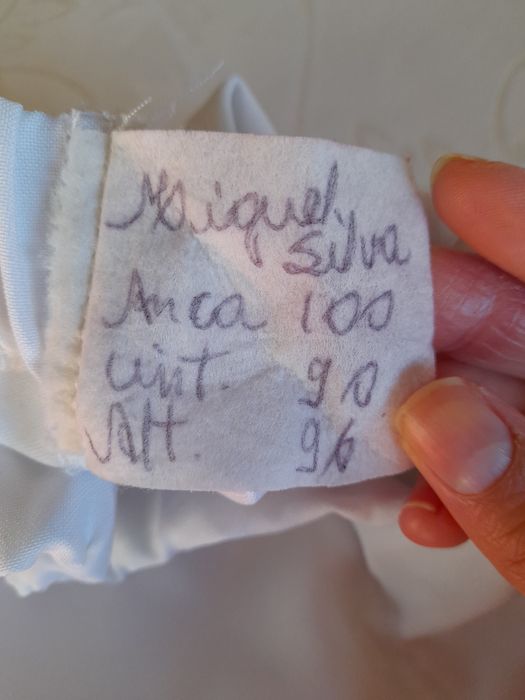 Miguel
Silva
Anca 100
Cint. 90
Alt. 96